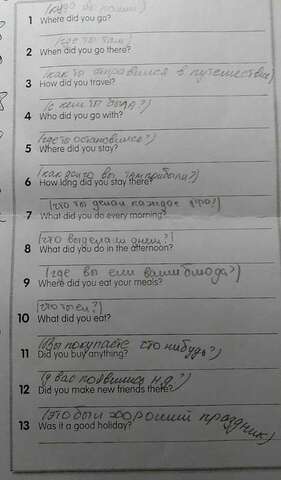 (куда вы пошли)
1 Where did you go?
(где ты там)
2 When did you go there?
(как ты отправился в путешествие)
3 How did you travel?
(с кем ты была?)
4 Who did you go with?
(где ты остановилсь?)
5 Where did you stay?
(как долго вы там прибыли?)
6 How long did you stay there?
(что ты делал каждое утро?)
7 What did you do every morning?
(что вы делали днем?)
8 What did you do in the afternoon?
(где вы ели ваши блюда?)
9 Where did you eat your meals?
(что ты ел?)
10 What did you eat?
(Вы покупаете что нибудь?)
11 Did you buy anything?
(у вас появились н.д?)
12 Did you make new friends there?
(это был хороший праздник)
13 Was it a good holiday?